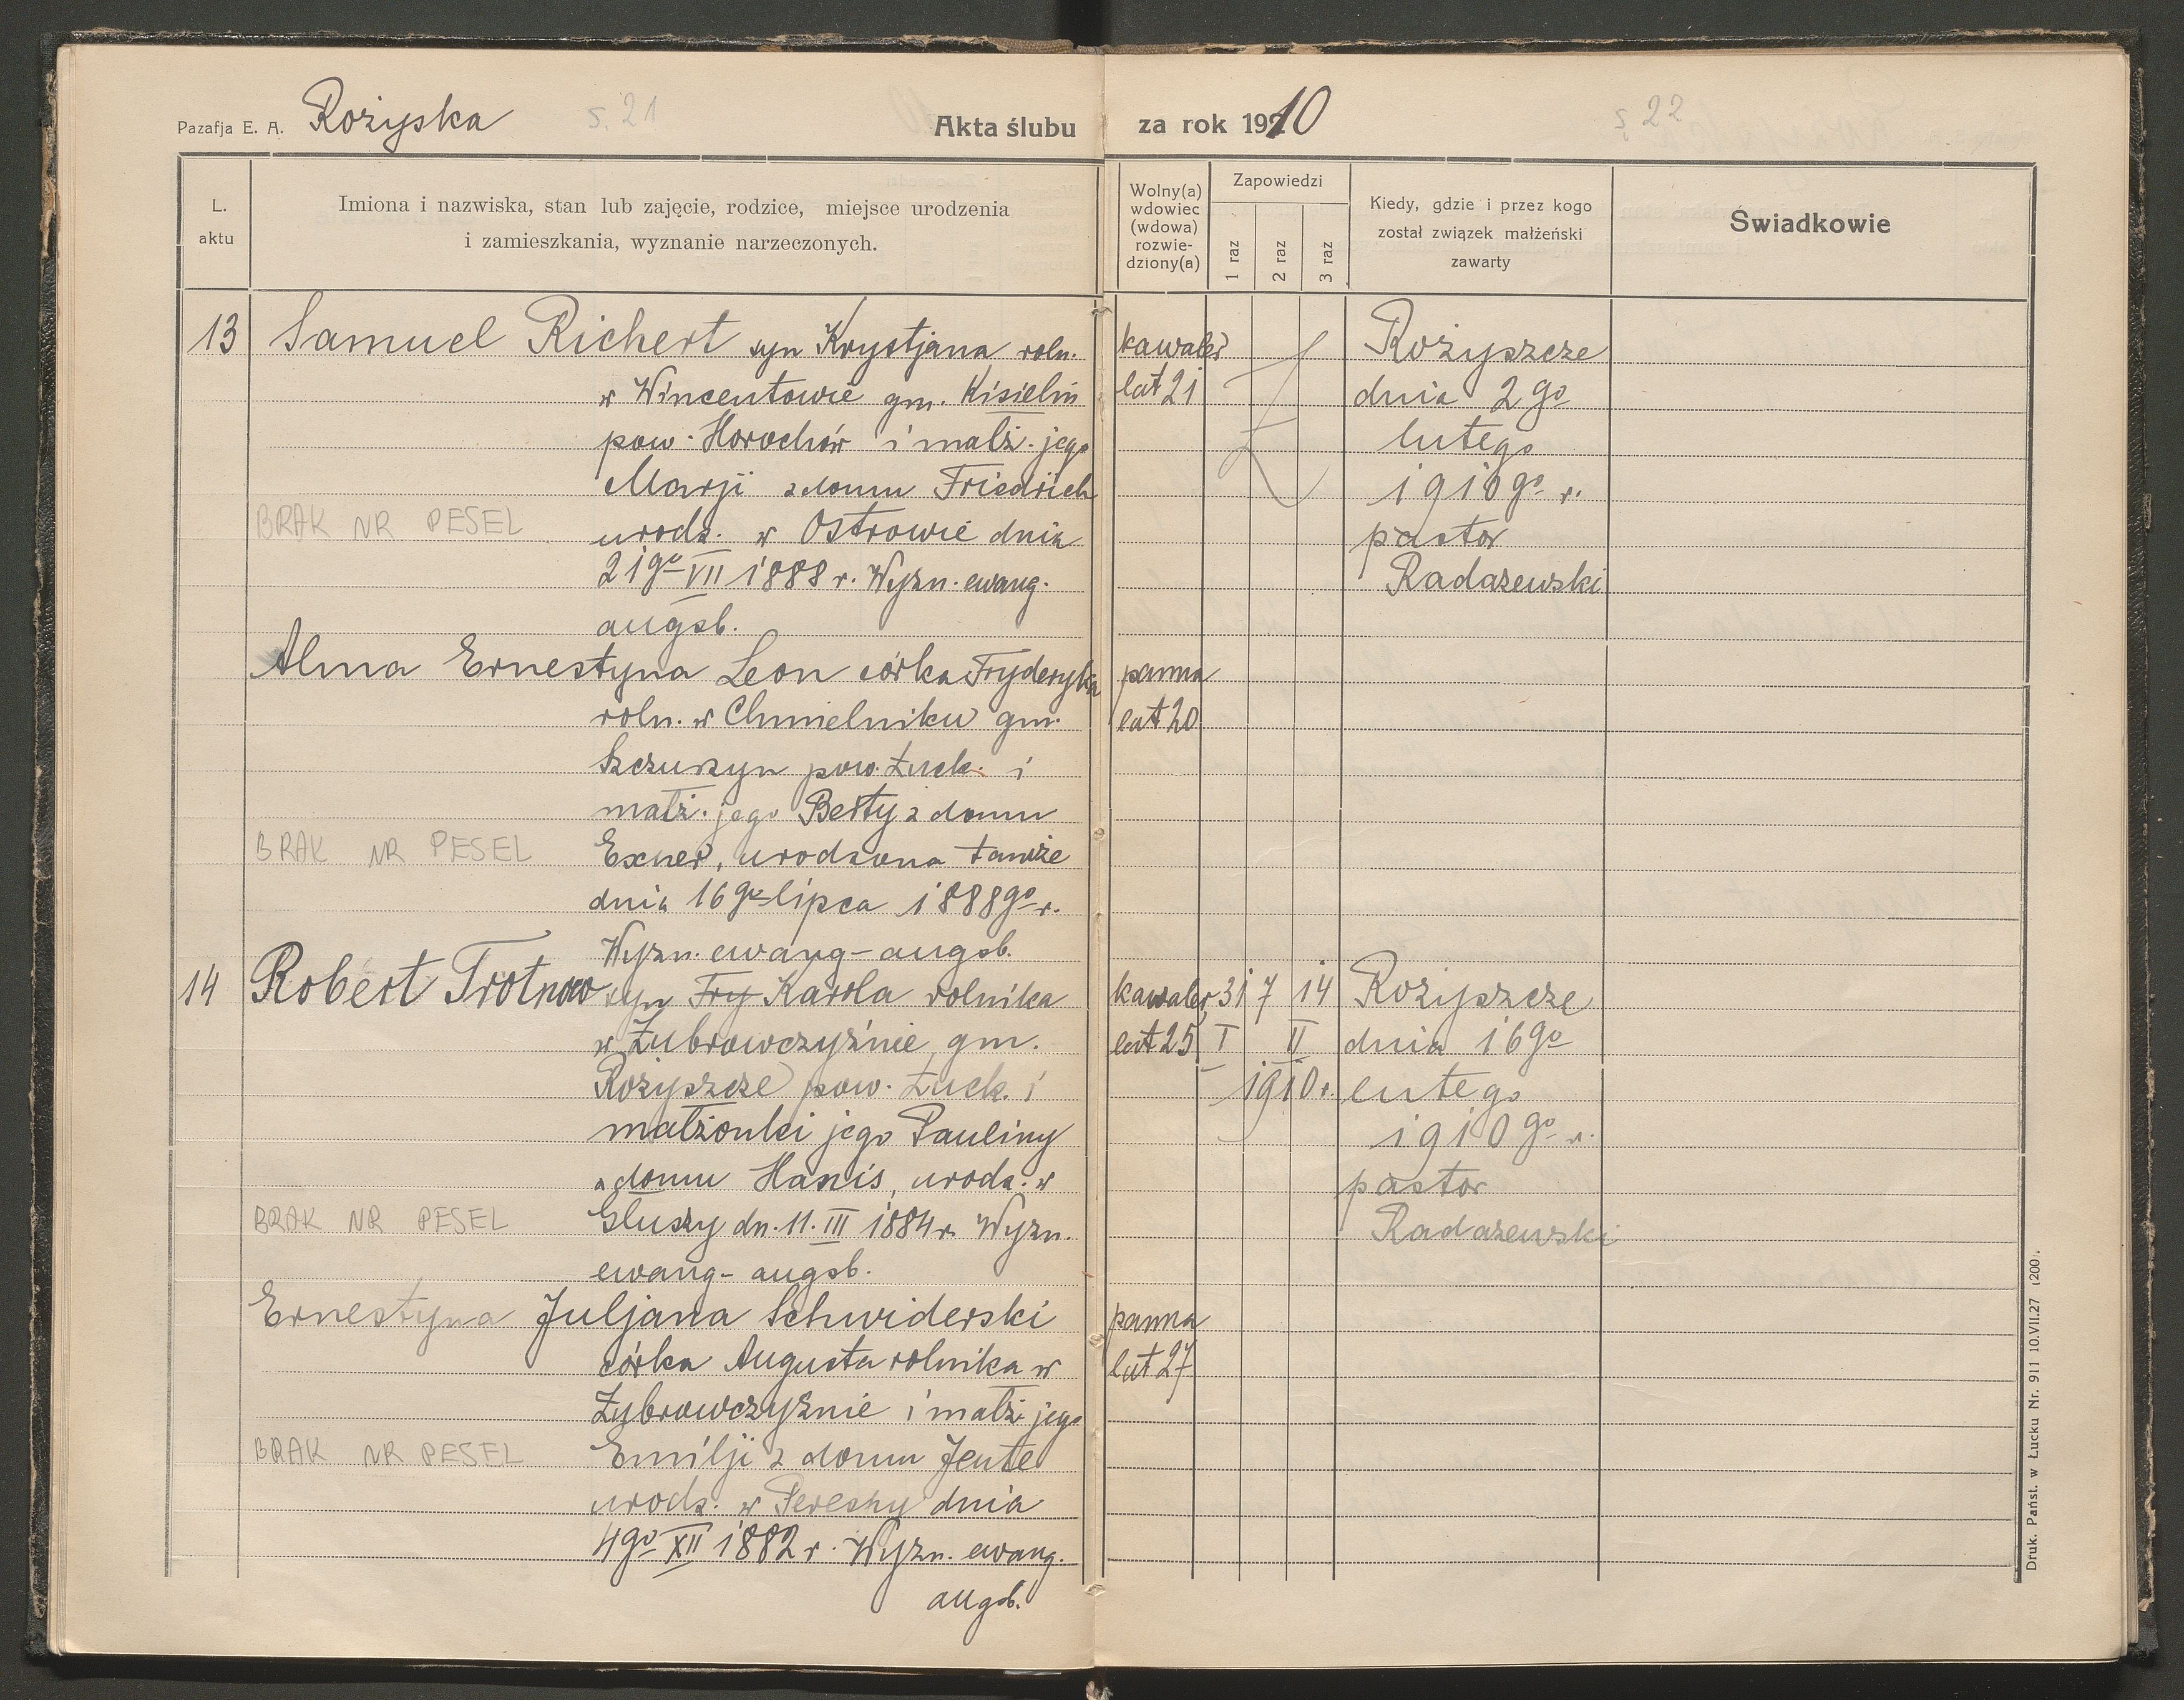 Pazafja E. A. Rożyska s. 21 Akta ślubu za rok 1910 s. 22
L. aktu
Imiona i nazwiska, stan lub zajęcie, rodzice, miejsce urodzenia
i zamieszkania, wyznanie narzeczonych.
Wolny(a)
wdowiec
(wdowa)
rozwie-
dziony(a)
Zapowiedzi
1 raz
2 raz
3 raz
Kiedy, gdzie i przez kogo
został związek małżeński
zawarty
Świadkowie
13 Samuel Richert syn Krystjana roln.
w Wincentowie gm. Kisielin
pow. Horochów i małż. jego
Marji z domu Friedrich
BRAK NR PESEL urodz. w Ostrowie dnia
21go VII 1888 r. Wyzn. ewang.
augsb.
kawaler
lat 21
Rożyszcze
dnia 2go
lutego
1910go r.
pastor
Radaszewski
Alma Ernestyna Leon córka Fryderyka
roln. w Chmielniku gm.
Szczurzyn pow. Łuck. i
małż. jego Berty z domu
BRAK NR PESEL Exner, urodzona tamże
dnia 16go lipca 1888go r.
Wyzn. ewang-augsb.
panna
lat 20
14 Robert Trotnow syn Fry Karola rolnika
w Żubrowczyźnie, gm.
Rożyszcze pow. Łuck. i
małżonki jego Pauliny
z domu Hanis, urodz. w
BRAK NR PESEL Głuszy dn. 11. III 1884 r. Wyzn.
ewang-augsb.
kawaler,
lat 25
31 7 14
I II
1910 r.
Rożyszcze
dnia 16go
lutego
1910go r.
pastor
Radaszewski
Ernestyna Juljana Schwiderski
córka Augusta rolnika w
Żubrowczyźnie i małż. jego
BRAK NR PESEL Emilji z domu Jeute
urodz. w dnia
4go XII 1882 r. Wyzn. ewang.
augsb.
panna
lat 27
Druk. Państ. w Łucku Nr. 911 10.VII.27 (200).